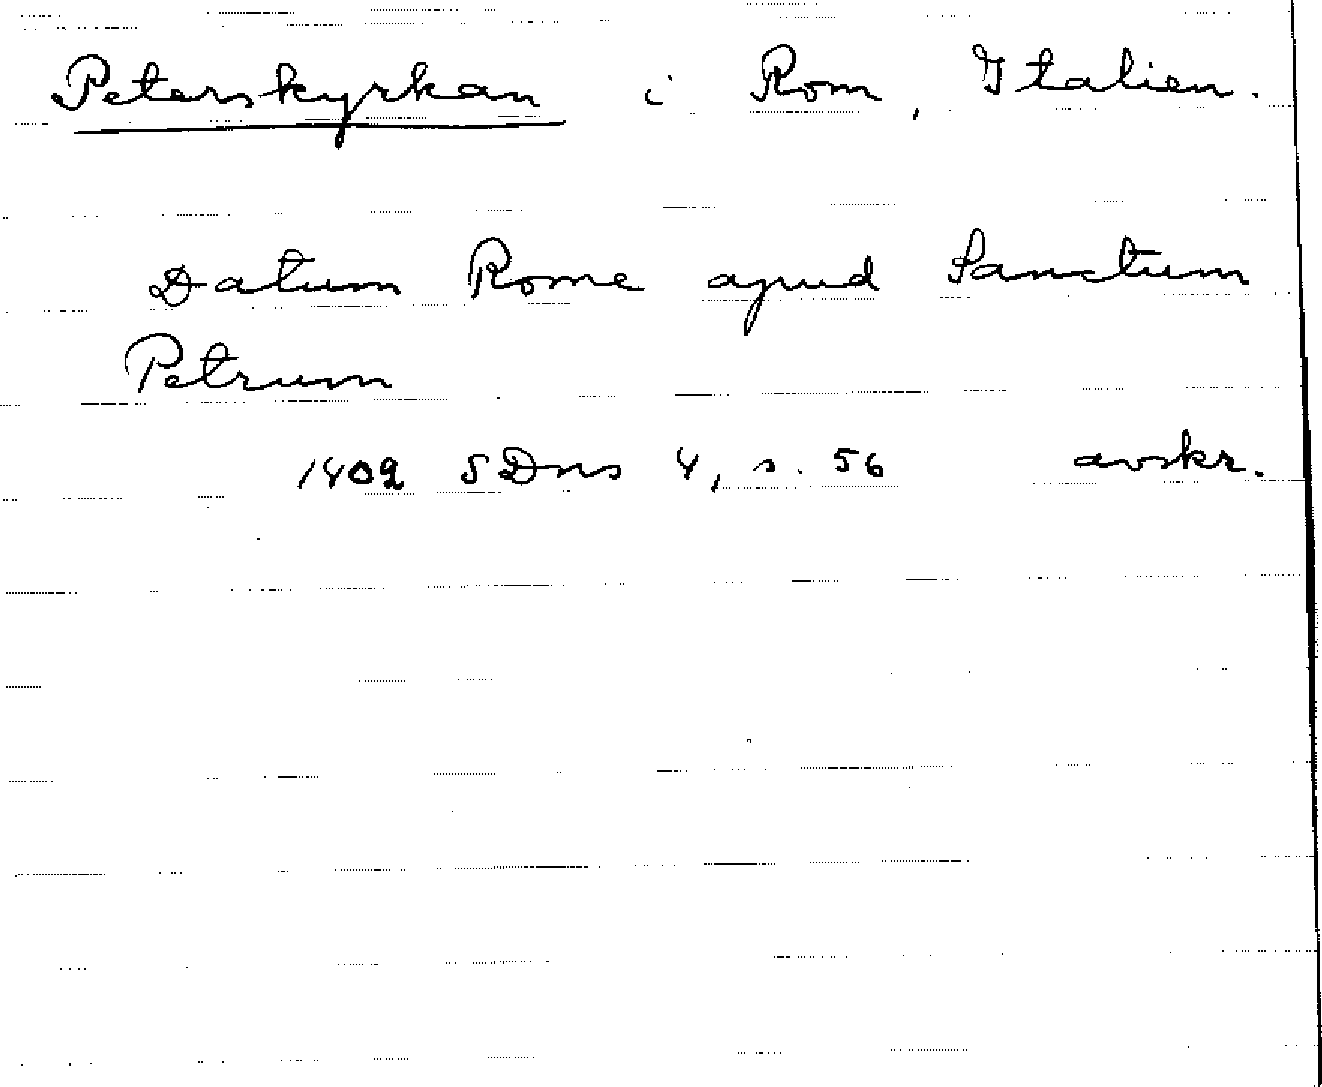 Peterskyrkan i Rom, Italien.
Datum Rome apud Sanctum
Petrum
1402 SDns 4, s. 56 avskr.